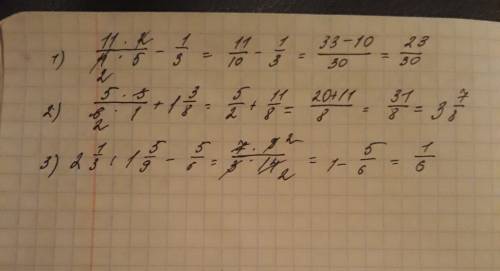 1) (11 · 2)/(4 · 5) - 1/3 = 11/10 - 1/3 = (33 - 10)/30 = 23/30
2
2) (5 · 3)/(6 · 1) + 1 3/8 = 5/2 + 11/8 = (20 + 11)/8 = 31/8 = 3 7/8
2
3) 2 1/3 : 1 5/9 - 5/6 = (7 · 9)/(3 · 14) = 1 - 5/6 = 1/6